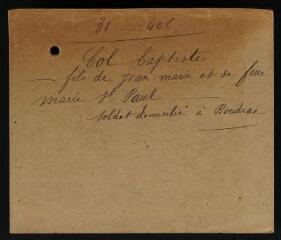 31 - 401
Col Baptiste
- fils de Jean-marie et de feue
marie St Paul
soldat domicilié à Boudrac